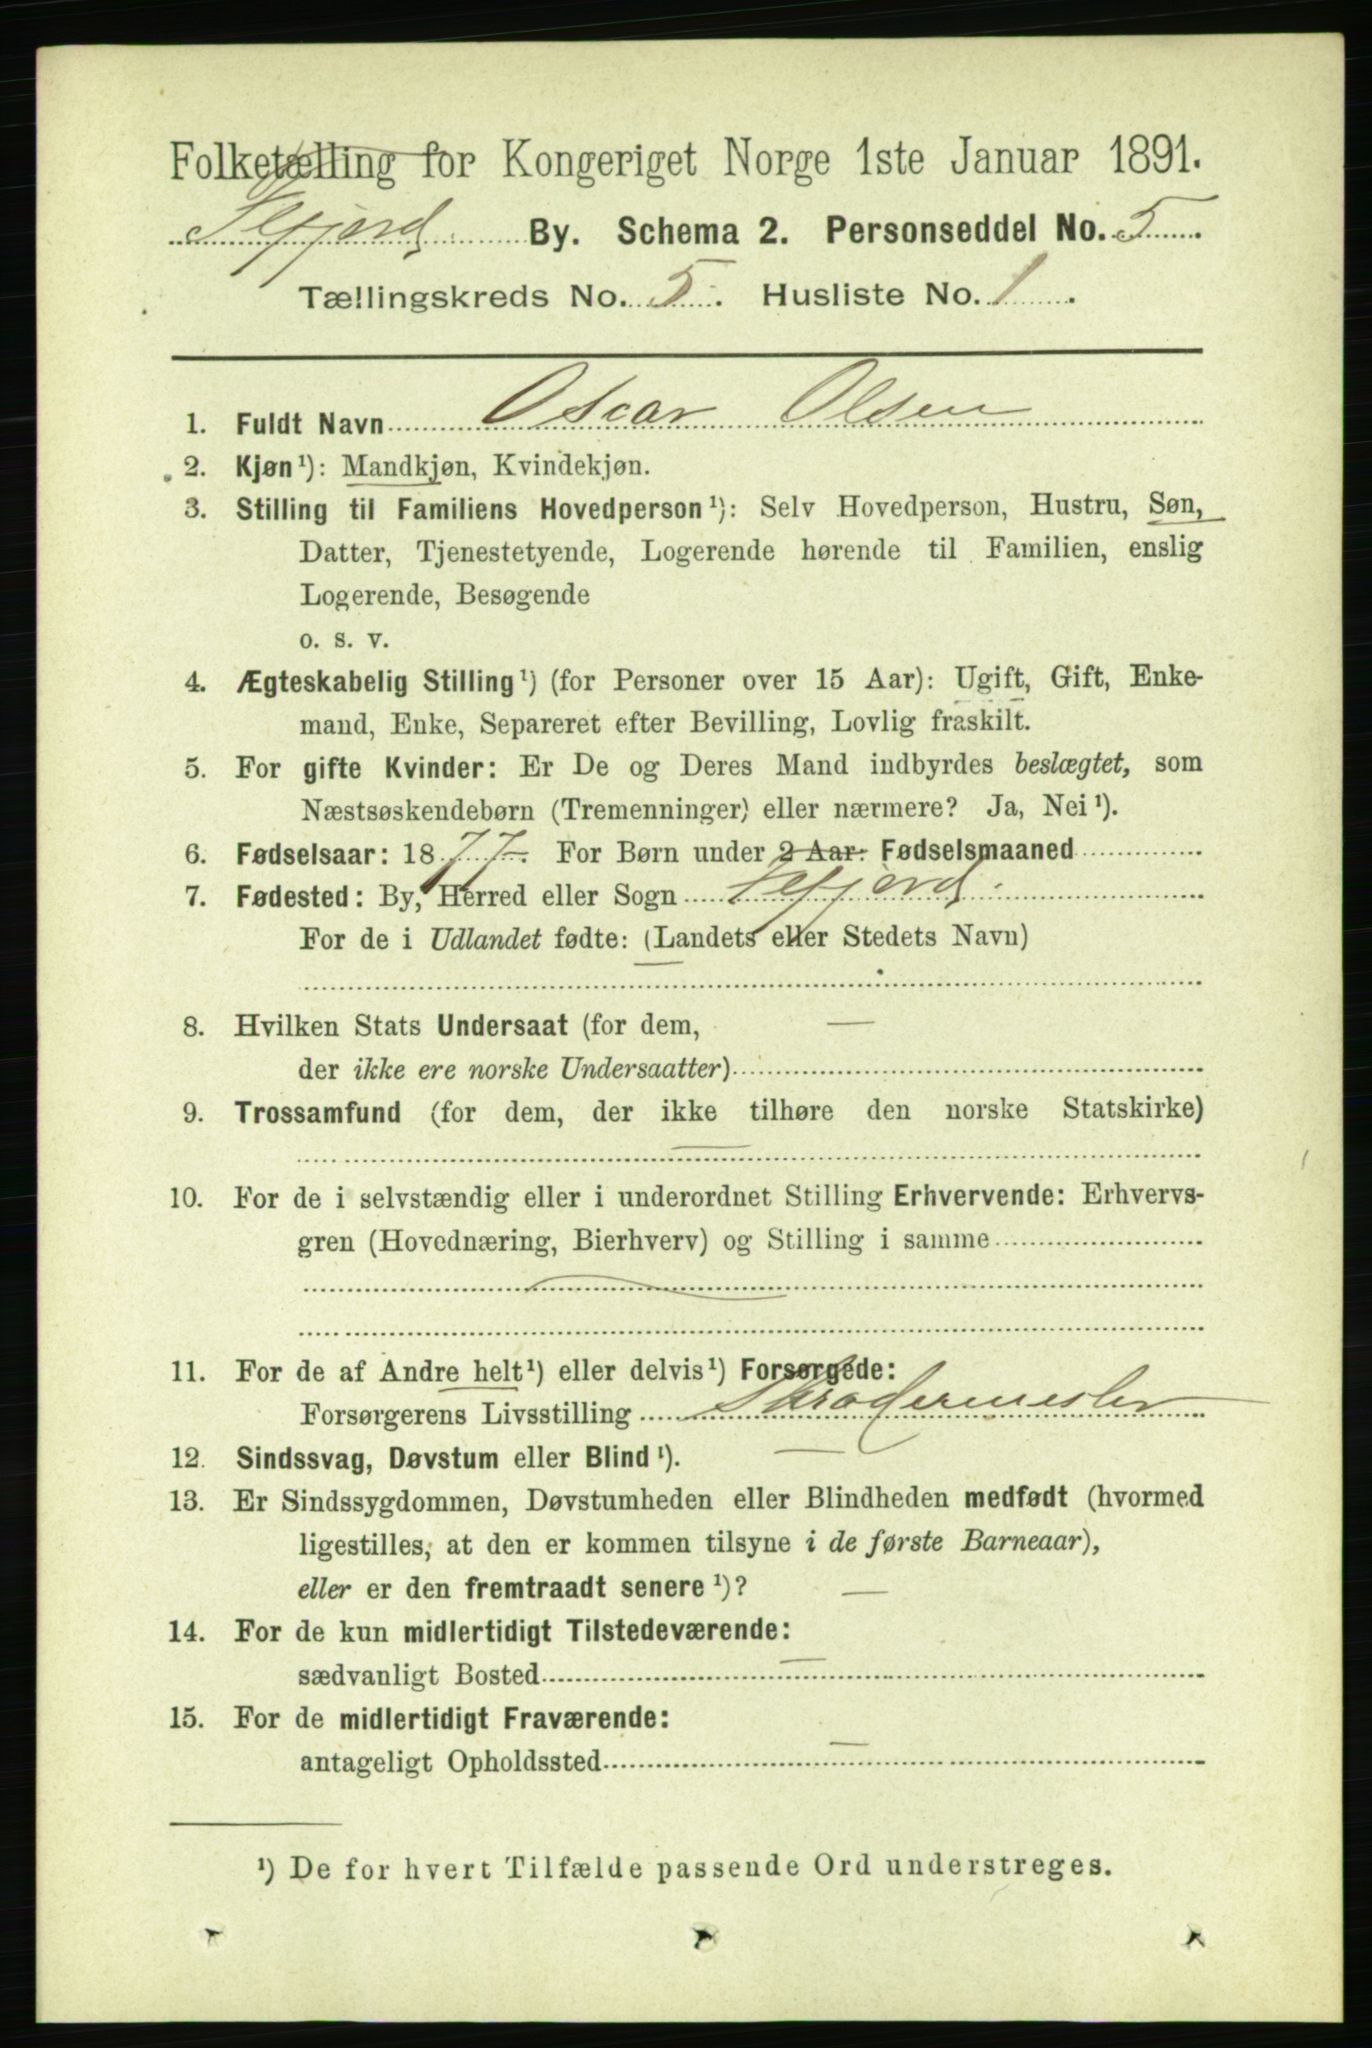 Folketælling for Kongeriget Norge 1ste Januar 1891.
Tefjord By. Schema 2. Personseddel No. 5
Tællingskreds No. 5. Husliste No. 1.
1. Fuldt Navn Oscar Olsen
2. Kjøn¹): Mandkjøn, Kvindekjøn.
3. Stilling til Familiens Hovedperson¹): Selv Hovedperson, Hustru, Søn,
Datter, Tjenestetyende, Logerende hørende til Familien, enslig
Logerende, Besøgende
o. s. v.
4. Ægteskabelig Stilling¹) (for Personer over 15 Aar): Ugift, Gift, Enke-
mand, Enke, Separeret efter Bevilling, Lovlig fraskilt.
5. For gifte Kvinder: Er De og Deres Mand indbyrdes beslægtet, som
Næstsøskendebørn (Tremenninger) eller nærmere? Ja, Nei¹).
6. Fødselsaar: 1877. For Børn under 2 Aar: Fødselsmaaned
7. Fødested: By, Herred eller Sogn Tefjord.
For de i Udlandet fødte: (Landets eller Stedets Navn)
8. Hvilken Stats Undersaat (for dem, —
der ikke ere norske Undersaatter)
9. Trossamfund (for dem, der ikke tilhøre den norske Statskirke)
—
10. For de i selvstændig eller i underordnet Stilling Erhvervende: Erhvervs-
gren (Hovednæring, Bierhverv) og Stilling i samme
11. For de af Andre helt¹) eller delvis¹) Forsørgede:
Forsørgerens Livsstilling Skrædermester
12. Sindssvag, Døvstum eller Blind¹). —
13. Er Sindssygdommen, Døvstumheden eller Blindheden medfødt (hvormed
ligestilles, at den er kommen tilsyne i de første Barneaar),
eller er den fremtraadt senere¹)? —
14. For de kun midlertidigt Tilstedeværende:
sædvanligt Bosted —
15. For de midlertidigt Fraværende:
antageligt Opholdssted —
¹) De for hvert Tilfælde passende Ord understreges.